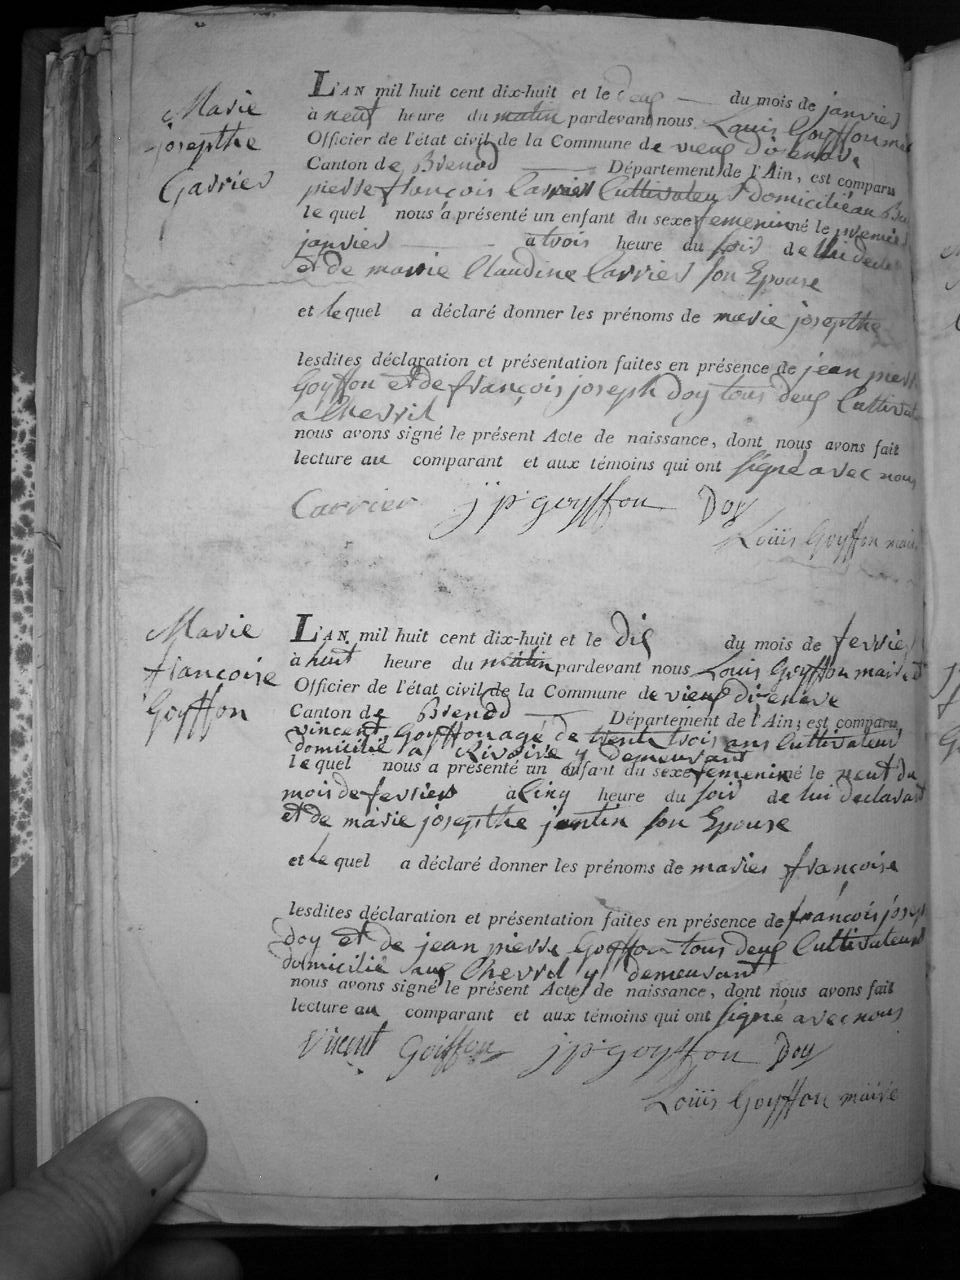 Marie
josepthe
Carrier
L'AN mil huit cent dix-huit et le deux du mois de janvier
à neuf heure du matin pardevant nous Louis Goyffon
Officier de l'état civil de la Commune de vieux
Canton de Brenod Département de l'Ain, est comparu
pierre françois Carrier Cultivateur domicilié au
le quel nous a présenté un enfant du sexe femenin né le premier
janvier à trois heure du soir de lui
et de marie Claudine Carrier son Epouse
et le quel a déclaré donner les prénoms de marie josepthe
lesdites déclaration et présentation faites en présence de jean
Goyffon et de françois joseph Doy tous deux
a Chevril
nous avons signé le présent Acte de naissance, dont nous avons fait
lecture au comparant et aux témoins qui ont signé avec nous
Carrier jp goyffon Doy
Loüis Goyffon
Marie
francoise
Goyffon
L'AN mil huit cent dix-huit et le dix du mois de fevrier
à huit heure du matin pardevant nous Louis Goyffon maire et
Officier de l'état civil de la Commune de vieux
Canton de Brenod Département de l'Ain, est comparu
vincent Goyffon agé de trente trois ans Cultivateur
domicilié a Rivoire y demeurant
le quel nous a présenté un enfant du sexe femenin né le neuf du
mois de fevrier à Cinq heure du soir de lui declarant
et de marie josepthe jantin son Epouse
et le quel a déclaré donner les prénoms de maries françoise
lesdites déclaration et présentation faites en présence de françois
Doy et de jean pierre Goyffon tous deux Cultivateurs
domicilié aux Chevril y demeurant
nous avons signé le présent Acte de naissance, dont nous avons fait
lecture au comparant et aux témoins qui ont signé avec nous
Vincent Goiffon jp goyffon Doy
Loüis Goyffon maire